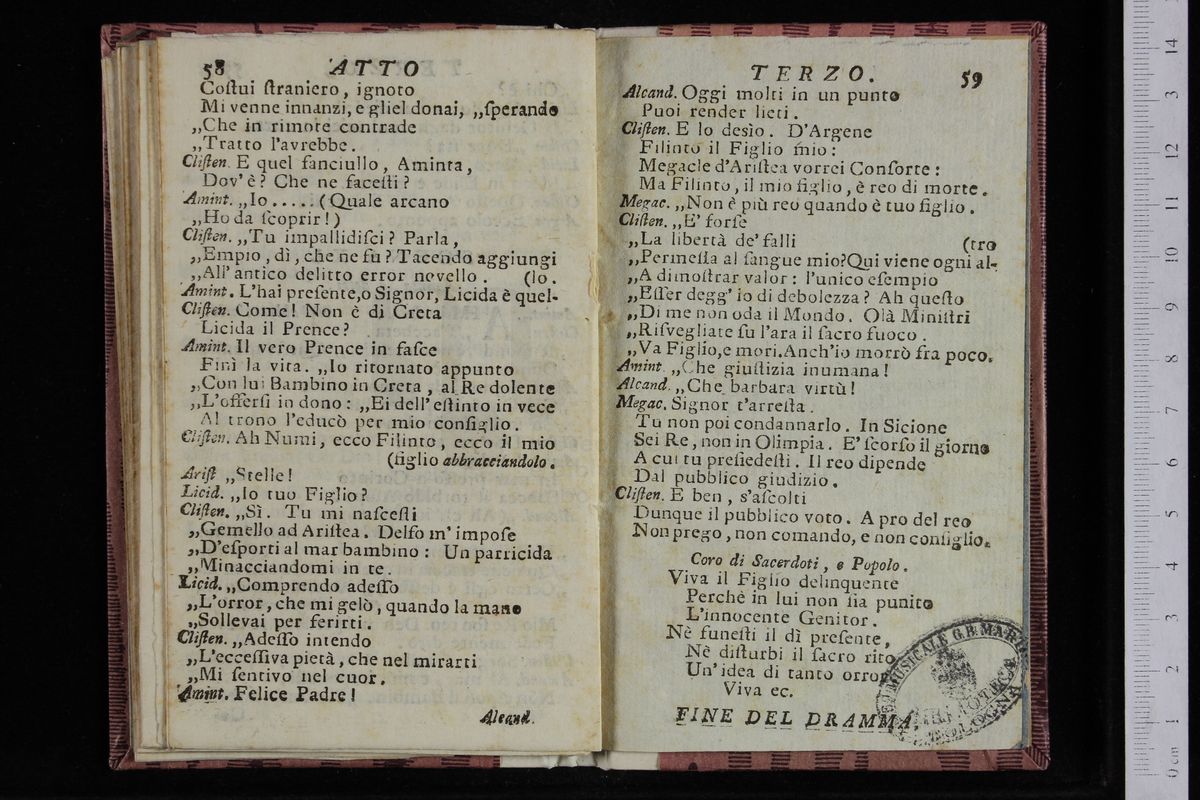 58 ATTO
Coſtui ſtraniero, ignoto
Mi venne innanzi, e gliel donai, „ſperando
„Che in rimote contrade
„Tratto l'avrebbe.
Cliſten. E quel fanciullo, Aminta,
Dov'è? Che ne faceſti?
Amint. „Io ..... (Quale arcano
„Ho da ſcoprir!)
Cliſten. „Tu impallidiſci? Parla,
„Empio, dì, che ne fu? Tacendo aggiungi
„All'antico delitto error novello. (lo.
Amint. L'hai preſente,o Signor, Licida è quel-
Cliſten. Come! Non è di Creta
Licida il Prence?
Amint. Il vero Prence in faſce
Finì la vita. „Io ritornato appunto
„Con lui Bambino in Creta, al Re dolente
„L'offerſi in dono: „Ei dell'eſtinto in vece
Al trono l'educò per mio conſiglio.
Cliſten. Ah Numi, ecco Filinto, ecco il mio
(figlio abbracciandolo.
Ariſt „Stelle!
Licid. „Io tuo Figlio?
Cliſten. „Sì. Tu mi naſceſti
„Gemello ad Ariſtea. Delfo m'impoſe
„D'eſporti al mar bambino: Un parricida
„Minacciandomi in te.
Licid. „Comprendo adeſſo
„L'orror, che mi gelò, quando la mano
„Sollevai per ferirti.
Cliſten. „Adeſſo intendo
„L'ecceſſiva pietà, che nel mirarti
„Mi ſentivo nel cuor.
Amint. Felice Padre!
Alcand.
TERZO. 59
Alcand. Oggi molti in un punto
Puoi render lieti.
Cliſten. E lo desìo. D'Argene
Filinto il Figlio mio:
Megacle d'Ariſtea vorrei Conſorte:
Ma Filinto, il mio figlio, è reo di morte.
Megac. „Non è più reo quando è tuo figlio.
Cliſten. „E' forſe
„La libertà de' falli (tro
„Permeſſa al ſangue mio?Qui viene ogni al-
„A dimoſtrar valor: l'unico eſempio
„Eſſer degg' io di debolezza? Ah queſto
„Di me non oda il Mondo. Olà Miniſtri
„Riſvegliate ſu l'ara il ſacro fuoco.
„Va Figlio,e mori.Anch'io morrò fra poco.
Amint. „Che giuſtizia inumana!
Alcand. „Che barbara virtù!
Megac. Signor t'arreſta.
Tu non poi condannarlo. In Sicione
Sei Re, non in Olimpia. E' ſcorſo il giorno
A cui tu preſiedeſti. Il reo dipende
Dal pubblico giudizio.
Cliſten. E ben, s'aſcolti
Dunque il pubblico voto. A pro del reo
Non prego, non comando, e non conſiglio.
Coro di Sacerdoti, e Popolo.
Viva il Figlio delinquente
Perchè in lui non ſia punito
L'innocente Genitor.
Nè funeſti il dì preſente,
Nè diſturbi il ſacro rito
Un'idea di tanto orror
Viva ec.
FINE DEL DRAMMA.
MUSICALE G.B. MARTINI
BOLOGNA
0 cm 1 2 3 4 5 6 7 8 9 10 11 12 13 14